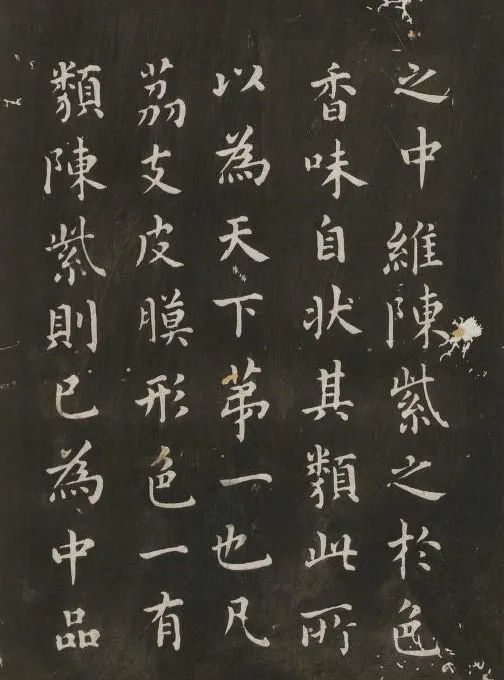 之中維陳紫之於色
香味自状其類此所
以為天下苐一也凡
茘支皮膜形色一有
類陳紫則已為中品